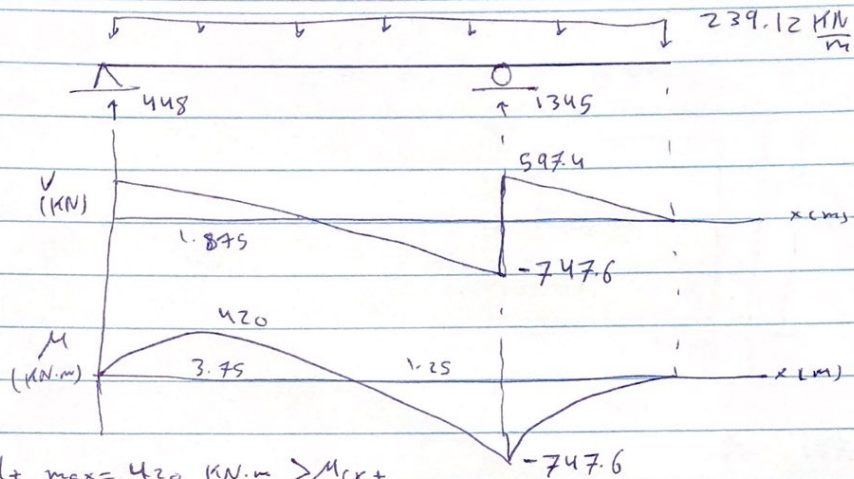 239.12 KN/m
448
1345
V
(KN)
597.4
x(m)
1.875
-747.6
420
M
(KN.m)
3.75
1.25
x(m)
-747.6
M+ max = 420 KN.m > Mcr+